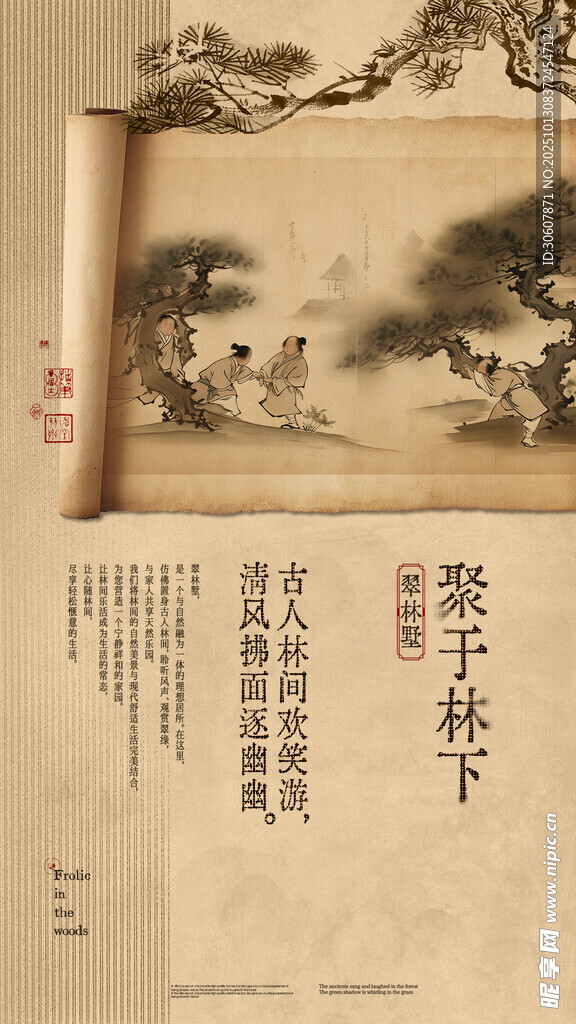 ID:30607871 NO:20251013083724547124
聚于林下
翠林墅
古人林间欢笑游，
清风拂面逐幽幽。
翠林墅，
是一个与自然融为一体的理想居所。在这里，
仿佛置身古人林间，聆听风声、观赏翠绿，
与家人共享天然乐园。
我们将林间的自然美景与现代舒适生活完美结合，
为您营造一个宁静祥和的家园。
让林间乐活成为生活的常态，
让心随林间，
尽享轻松惬意的生活。
Frolic
in
the
woods
The ancients sang and laughed in the forest
The green shadow is whirling in the grass
昵享网 www.nipic.cn